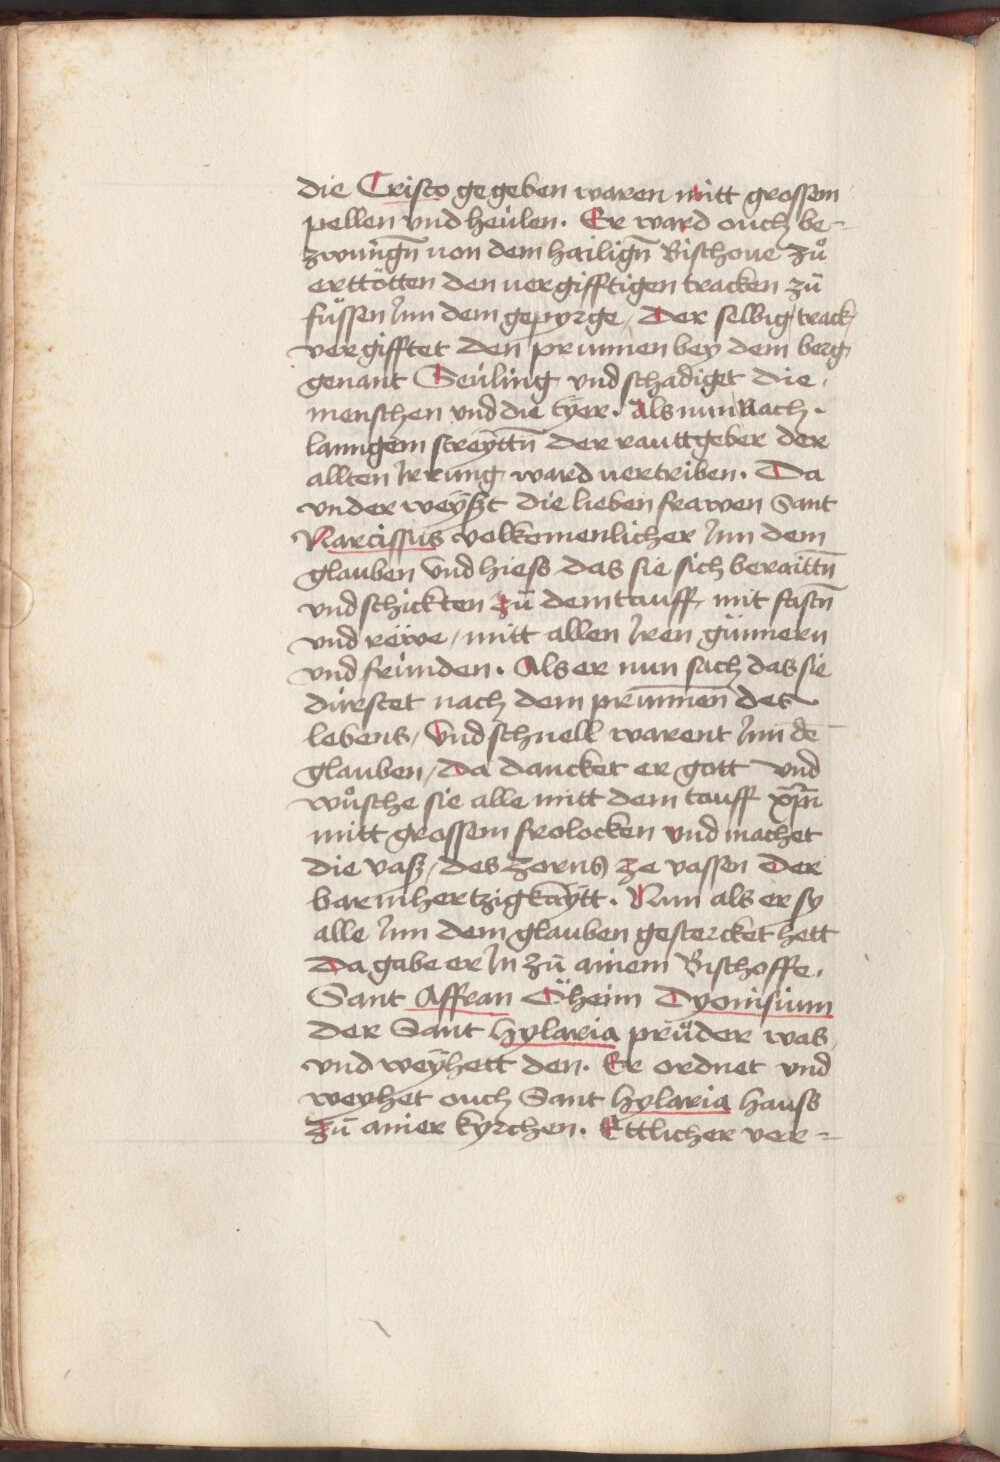 die Cristo gegeben waren mitt grossem
pellen vnd heülen. Er ward ouch be-
zwungñ von dem hailigñ Bischoue zů
erttötten den vergifftigen tracken zü
füssen Jnn dem gepyrge / Der selbig track /
vergifftet den prunnen bey dem berg
genant Seüling vnd schadiget die
menschen vnd die tÿer. Als nun Nach
lanngem streÿttñ der rauttgeber der
allten Jrrung ward vertriben. Da
vnderweÿßt die lieben frawen Sant
Narcissus volkomenlicher Jnn dem
glauben vnd hiess das sie sich beraittñ
vnd schickten zü dem tauff, mit fastñ
vnd rëwe / mitt allen Jren günnern
vnd fründen. Als er nun sach das sie
dürstet nach dem prunnen des
lebens / Vnd schnell warent Jnn dē
glauben / Da dancket er gott vnd
wůsche sie alle mitt dem tauff xp̄i
mitt grossem frolocken vnd machet
die vaß / des zorns ze vassen Der
barmhertzigkaÿtt. Nun als er sy
alle Jnn dem glauben gestercket hett
Da gabe er Jn zü ainem Bischoffe.
Sant Affran Öheim Dyonisium
der Sant hylaria průder was
vnd weÿhett den. Er ordnet vnd
weyhet ouch Sant hylaria hauss
zü ainer kyrchen. Ettlicher ver-